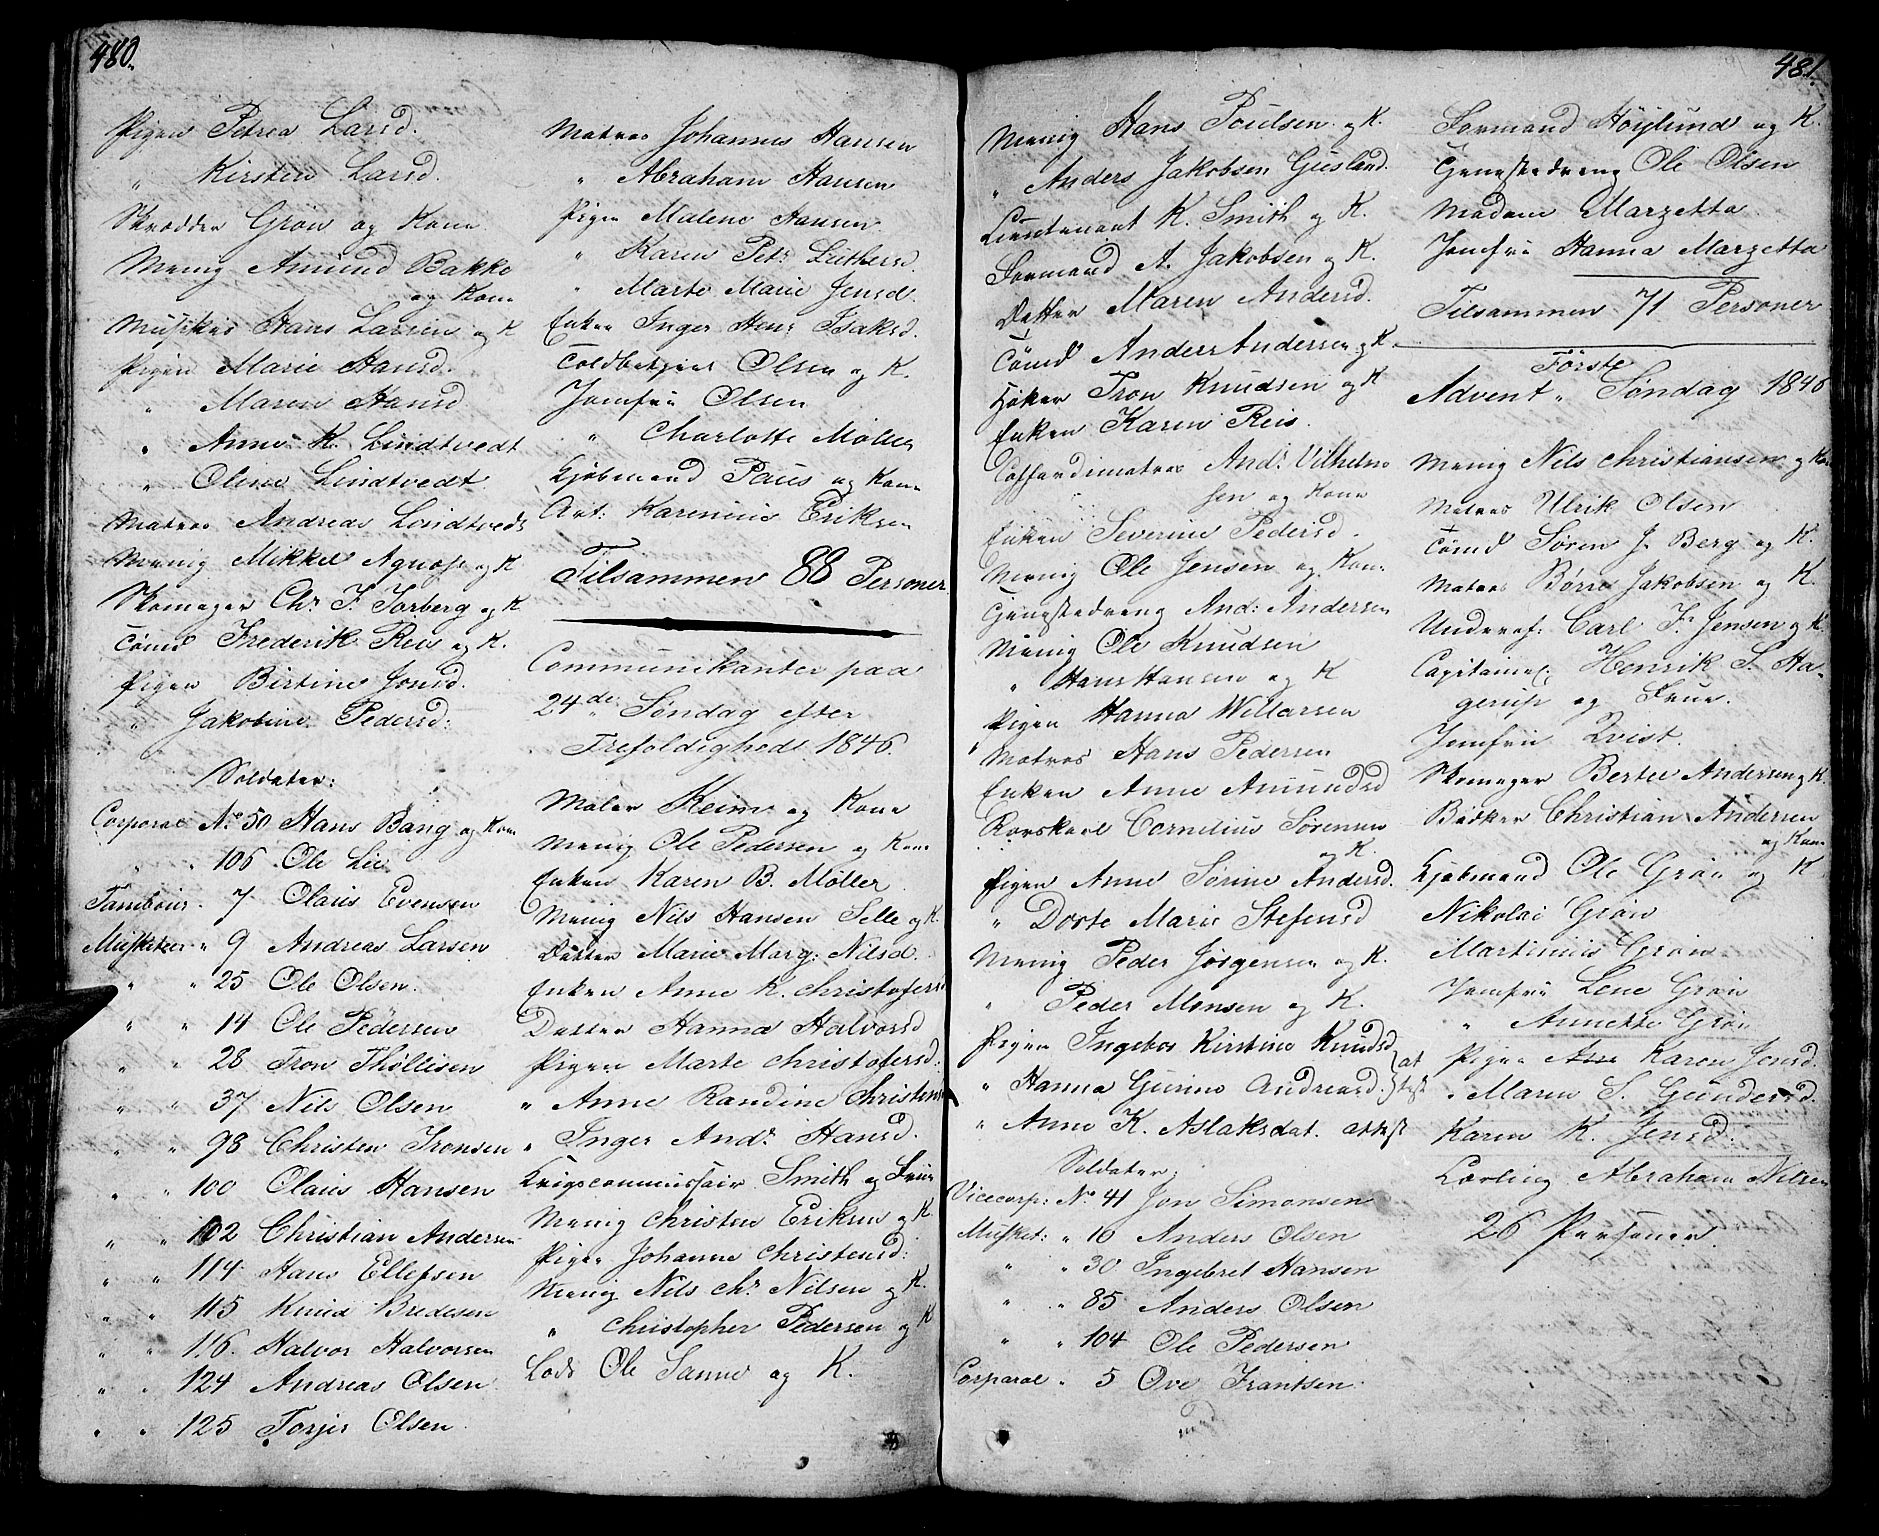 480.
Pigen Petrea Larsd.
" Kirsten Larsd.
Skrædder Grøn og Kone
Menig Amund Bakke
og Kone
Musiker Hans Larsen og K
Pigen Marie Hansd.
" Maren Hansd
" Anne K. Lindtvedt
" Oline Lindtvedt
Matros Andreas Lindtvedt
Menig Mikkel Aguose og K
Skomager Chr. F. Torberg og K
Tømd Frederik Reis og K.
Pigen Birtine Jonsd.
" Jakobine Pedersd:
Soldater:
Corporal No 50 Hans Bang og Kone
" 106 Ole Lie
Tambour " 7 Olaus Evensen
Musketeer " 9 Andreas Larsen
" " 25 Ole Olsen.
" " 14 Ole Pedersen
" " 28 Tron Thollesen
" " 37 Nils Olsen
" " 98 Christen Tronsen
" " 100 Olaus Hansen
" " 102 Christian Andersen
" " 114 Hans Ellefsen
" " 115 Knud Bredesen
" " 116. Halvor Halvorsen
" " 124 Andreas Olsen
" " 125 Torjer Olsen.
Matros Johannes Hansen
" Abraham Hansen
Pigen Malene Hansen
" Karen Petr. Luthersd.
" Marte Marie Jensd.
Enken Inger Henr. Isaksd.
Toldbetjent Olsen og K.
Jomfru Olsen
" Charlotte Møller
Kjøbmand Paus og Kone
Art: Karenius Eriksen
Tilsammen 88 Personer
Communikanter paa
24de Søndag efter
Trefoldigheds 1846.
Maler Keim og Kone
Menig Ole Pedersen og Kone
Enken Karen B. Møller
Menig Nils Hansen Selle og K.
Datter Marie Marg: Nilsd.
Enken Anne K. Christofersd
Datter Hanna Halvorsd
Pigen Marte Christofersd.
" Anne Randine Christensd
" Inger Andr. Hansd.
Krigscommissair Smith og Frue
Menig Christen Eriksen og K
Pigen Johanne Christensd:
Menig Nils Chr. Nilsen og K.
" Christopher Pedersen og K
Lods Ole Sanne og K.
481.
Menig Hans Poulsen og K.
" Anders Jakobsen Gusland.
Lieutenant K. Smith og K.
Formand A. Jakobsen og K.
Datter Maren Andersd.
Tømd Anders Andersen og K.
Høker Tron Knudsen og K
Enken Karen Reis.
Coffardimatros Andr. Vilhelm
sen og Kone
Enken Severine Pedersd.
Menig Ole Jensen og Kone
Gjengsedreng And: Andersen
Menig Ole Knudsen
" Hans Hansen og K
Pigen Hanna Willarsen
Matros Hans Pedersen
Enken Anne Amundsd
Rorskarl Cornelius Sørensen
og K.
Pigen Anne Sørine Andersd.
" Dorte Marie Stefensd
Menig Peder Jørgensen og K.
" Peder Monsen og K.
Pigen Ingebor Kirstine Knudsd
" Hanna Gurine Andreasd. } at
test
" Anne K. Aslaksdat. attest
Soldater:
Vicecorp: No 41 Jon Simonsen
Musket: " 16 Anders Olsen
" " 30 Ingebret Hansen
" " 85 Anders Olsen
" " 104 Ole Pedersen
Corporal " 5 Ove Frantsen.
Formand Høylund og K.
Gjengsedreng Ole Olsen
Madam Marzetta.
Jomfru Hanna Marzetta
Tilsammen 71 Personer
Første
Advent " Søndag 1846
Menig Nils Christiansen og Kone
Matros Ulrik Olsen
Tømd Søren J. Berg og K.
Matros Børre Jakobsen og K.
Underof. Carl Fr. Jensen og K
Capitaine Henrik S. Ha-
gerup og Frue.
Jomfru Qvist.
Skomager Bertel Andersen og K.
Bødker Christian Andersen
og Kone
Kjøbmand Ole Grøn og K
Nikolai Grøn
Martinius Grøn
Jomfru Lene Grøn
" Annette Grøn
Pigen Ane Karen Jensd.
" Maren S. Gundersd.
Karen K. Jensd.
Lærling Abraham Nilsen
26 Personer.